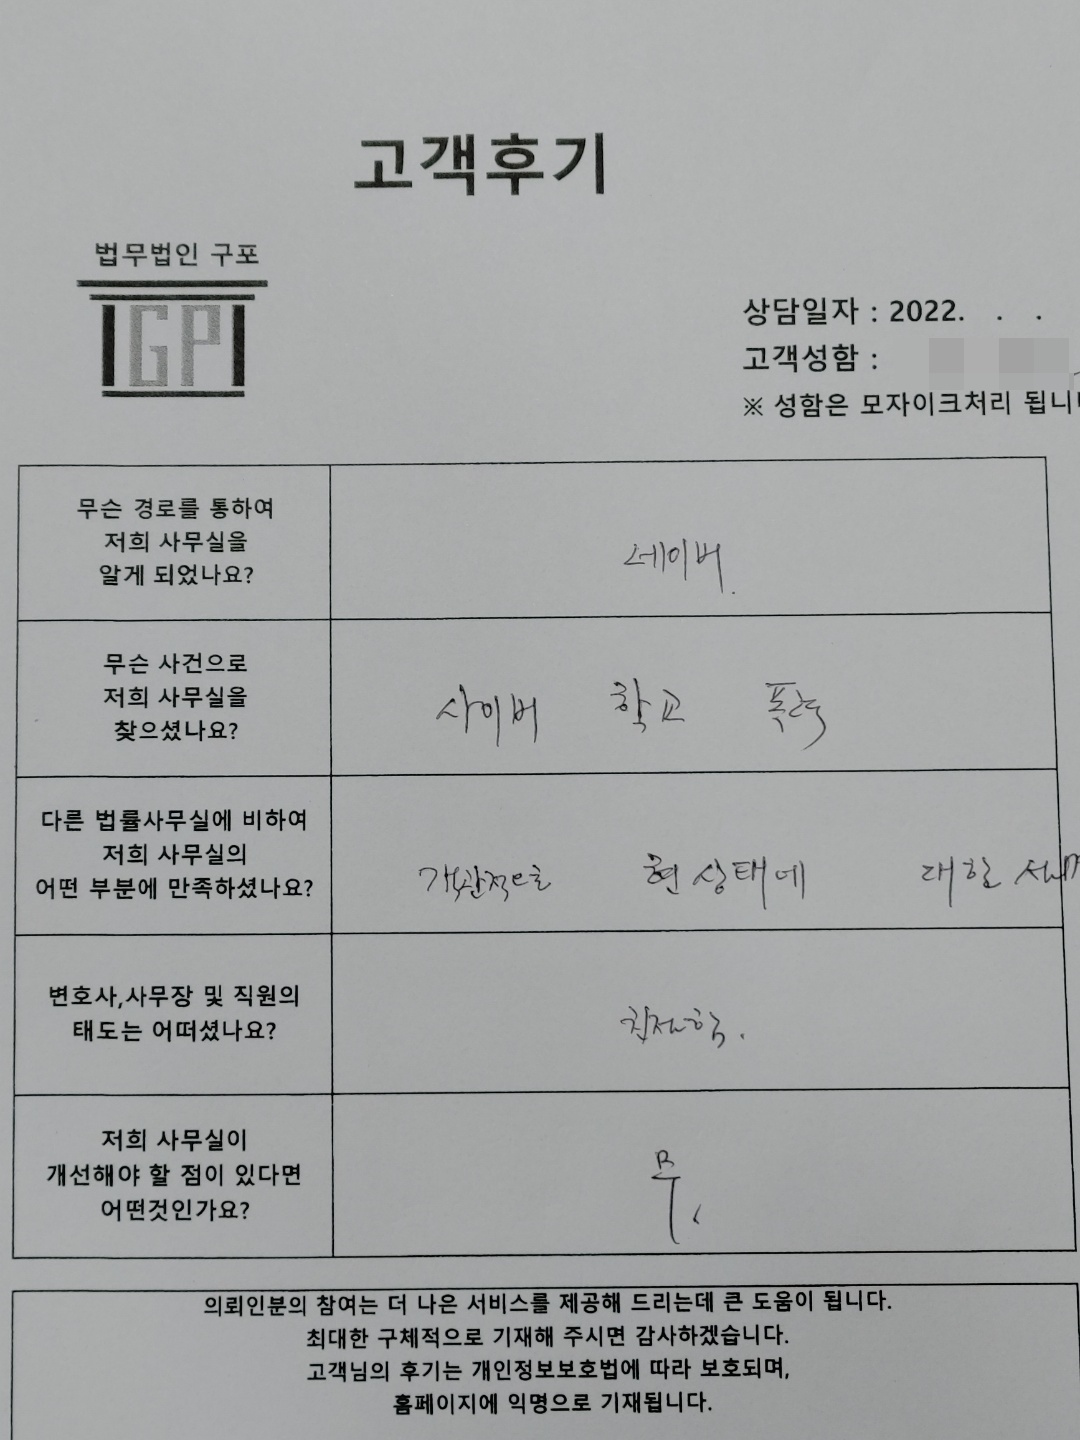 고객후기
법무법인 구포
GP
상담일자 : 2022. . .
고객성함 :
※ 성함은 모자이크처리 됩니
무슨 경로를 통하여
저희 사무실을
알게 되었나요?
네이버.
무슨 사건으로
저희 사무실을
찾으셨나요?
사이버 학교 폭력
다른 법률사무실에 비하여
저희 사무실의
어떤 부분에 만족하셨나요?
객관적으로 현상태에 대한
변호사,사무장 및 직원의
태도는 어떠셨나요?
친절함.
저희 사무실이
개선해야 할 점이 있다면
어떤것인가요?
무.
의뢰인분의 참여는 더 나은 서비스를 제공해 드리는데 큰 도움이 됩니다.
최대한 구체적으로 기재해 주시면 감사하겠습니다.
고객님의 후기는 개인정보보호법에 따라 보호되며,
홈페이지에 익명으로 기재됩니다.